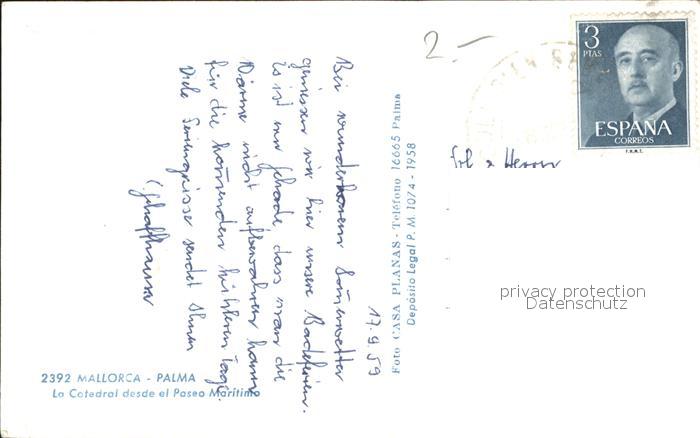 2.–
3
PTAS
ESPAÑA
CORREOS
F.N.M.T.
17.9.59
Bei wunderbarem Sonnenwetter
geniessen wir hier unsere Badeferien.
Es ist nur schade, dass man die
Wärme nicht aufbewahren kann
für die kommenden kühleren Tage.
Viele Feriengrüsse sendet Ihnen
Foto CASA PLANAS - Teléfono 16665 Palma
Depósito Legal P. M. 1074 - 1958
Herrn
privacy protection
Datenschutz
2392 MALLORCA - PALMA
La Catedral desde el Paseo Marítimo